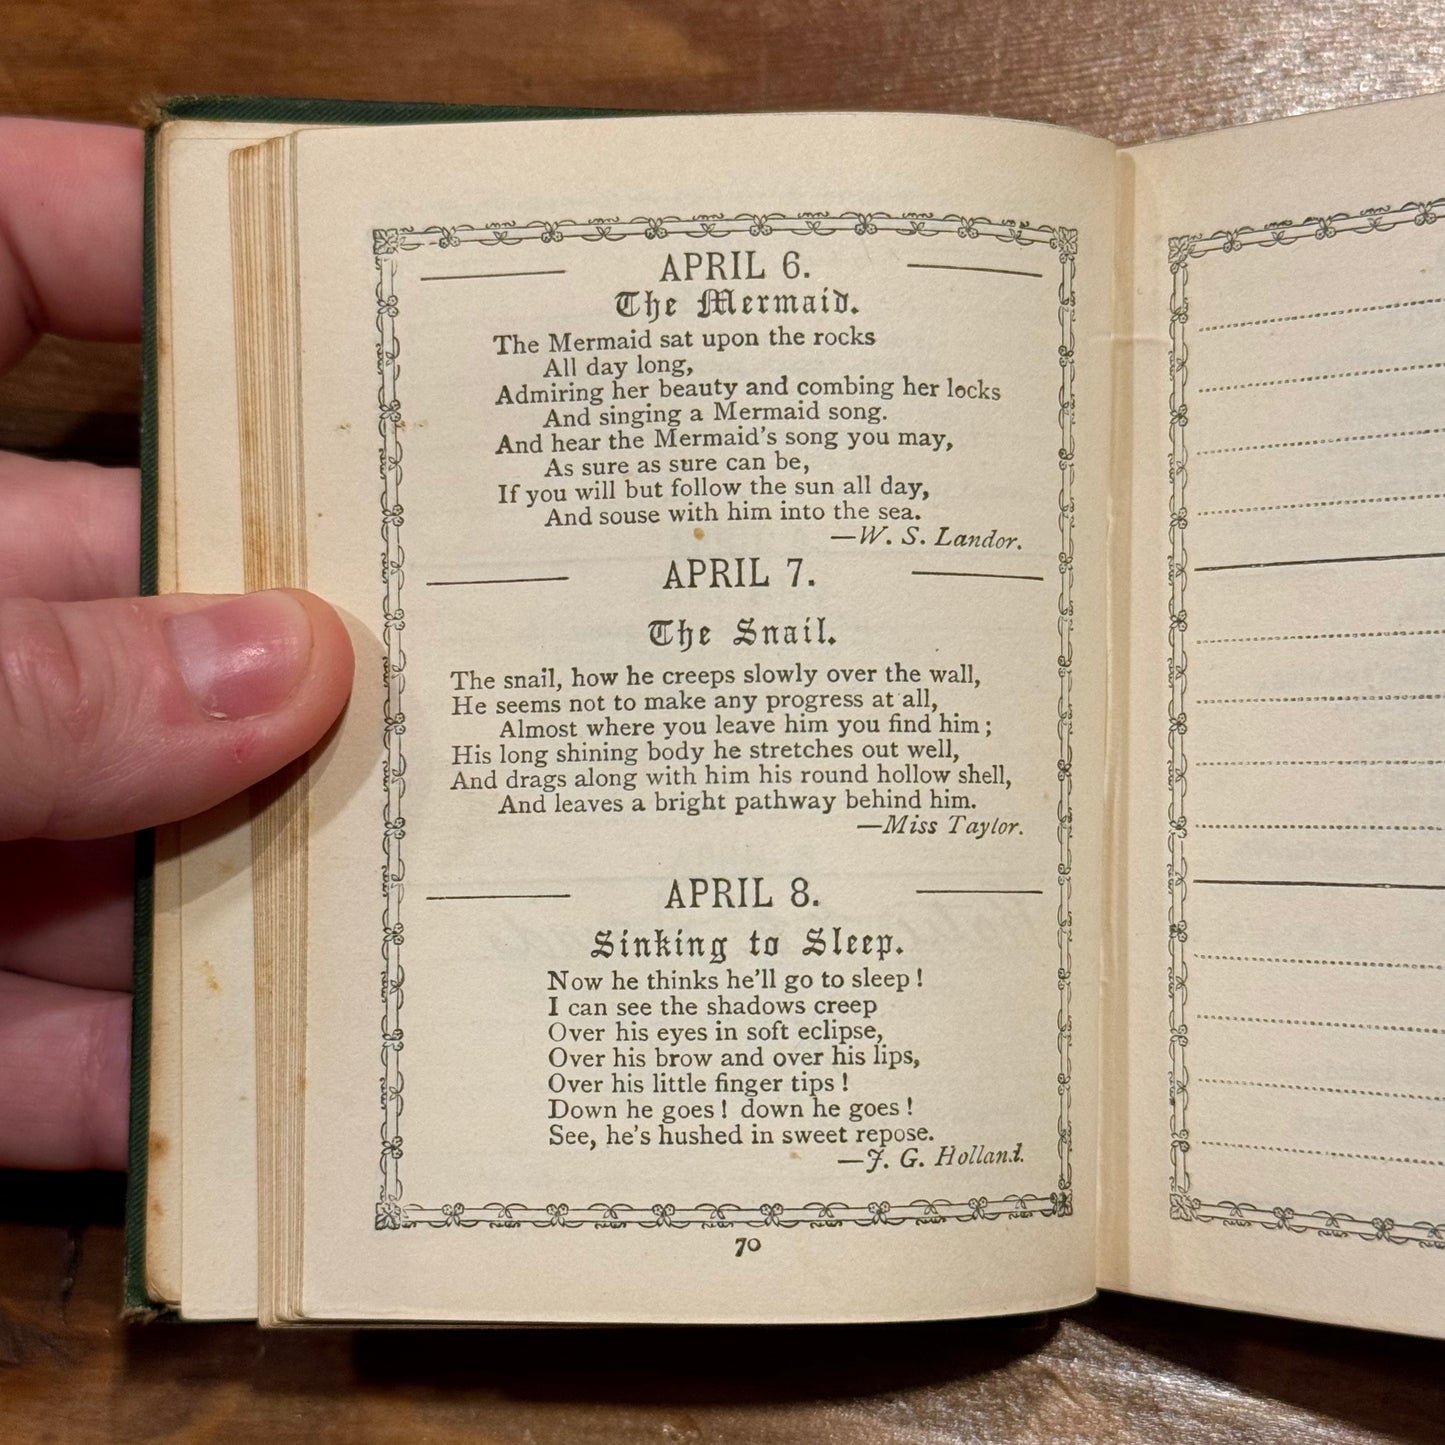 APRIL 6.
The Mermaid.
The Mermaid sat upon the rocks
All day long,
Admiring her beauty and combing her locks
And singing a Mermaid song.
And hear the Mermaid's song you may,
As sure as sure can be,
If you will but follow the sun all day,
And souse with him into the sea.
—W. S. Landor.
APRIL 7.
The Snail.
The snail, how he creeps slowly over the wall,
He seems not to make any progress at all,
Almost where you leave him you find him;
His long shining body he stretches out well,
And drags along with him his round hollow shell,
And leaves a bright pathway behind him.
—Miss Taylor.
APRIL 8.
Sinking to Sleep.
Now he thinks he'll go to sleep!
I can see the shadows creep
Over his eyes in soft eclipse,
Over his brow and over his lips,
Over his little finger tips!
Down he goes! down he goes!
See, he's hushed in sweet repose.
—J. G. Holland.
70